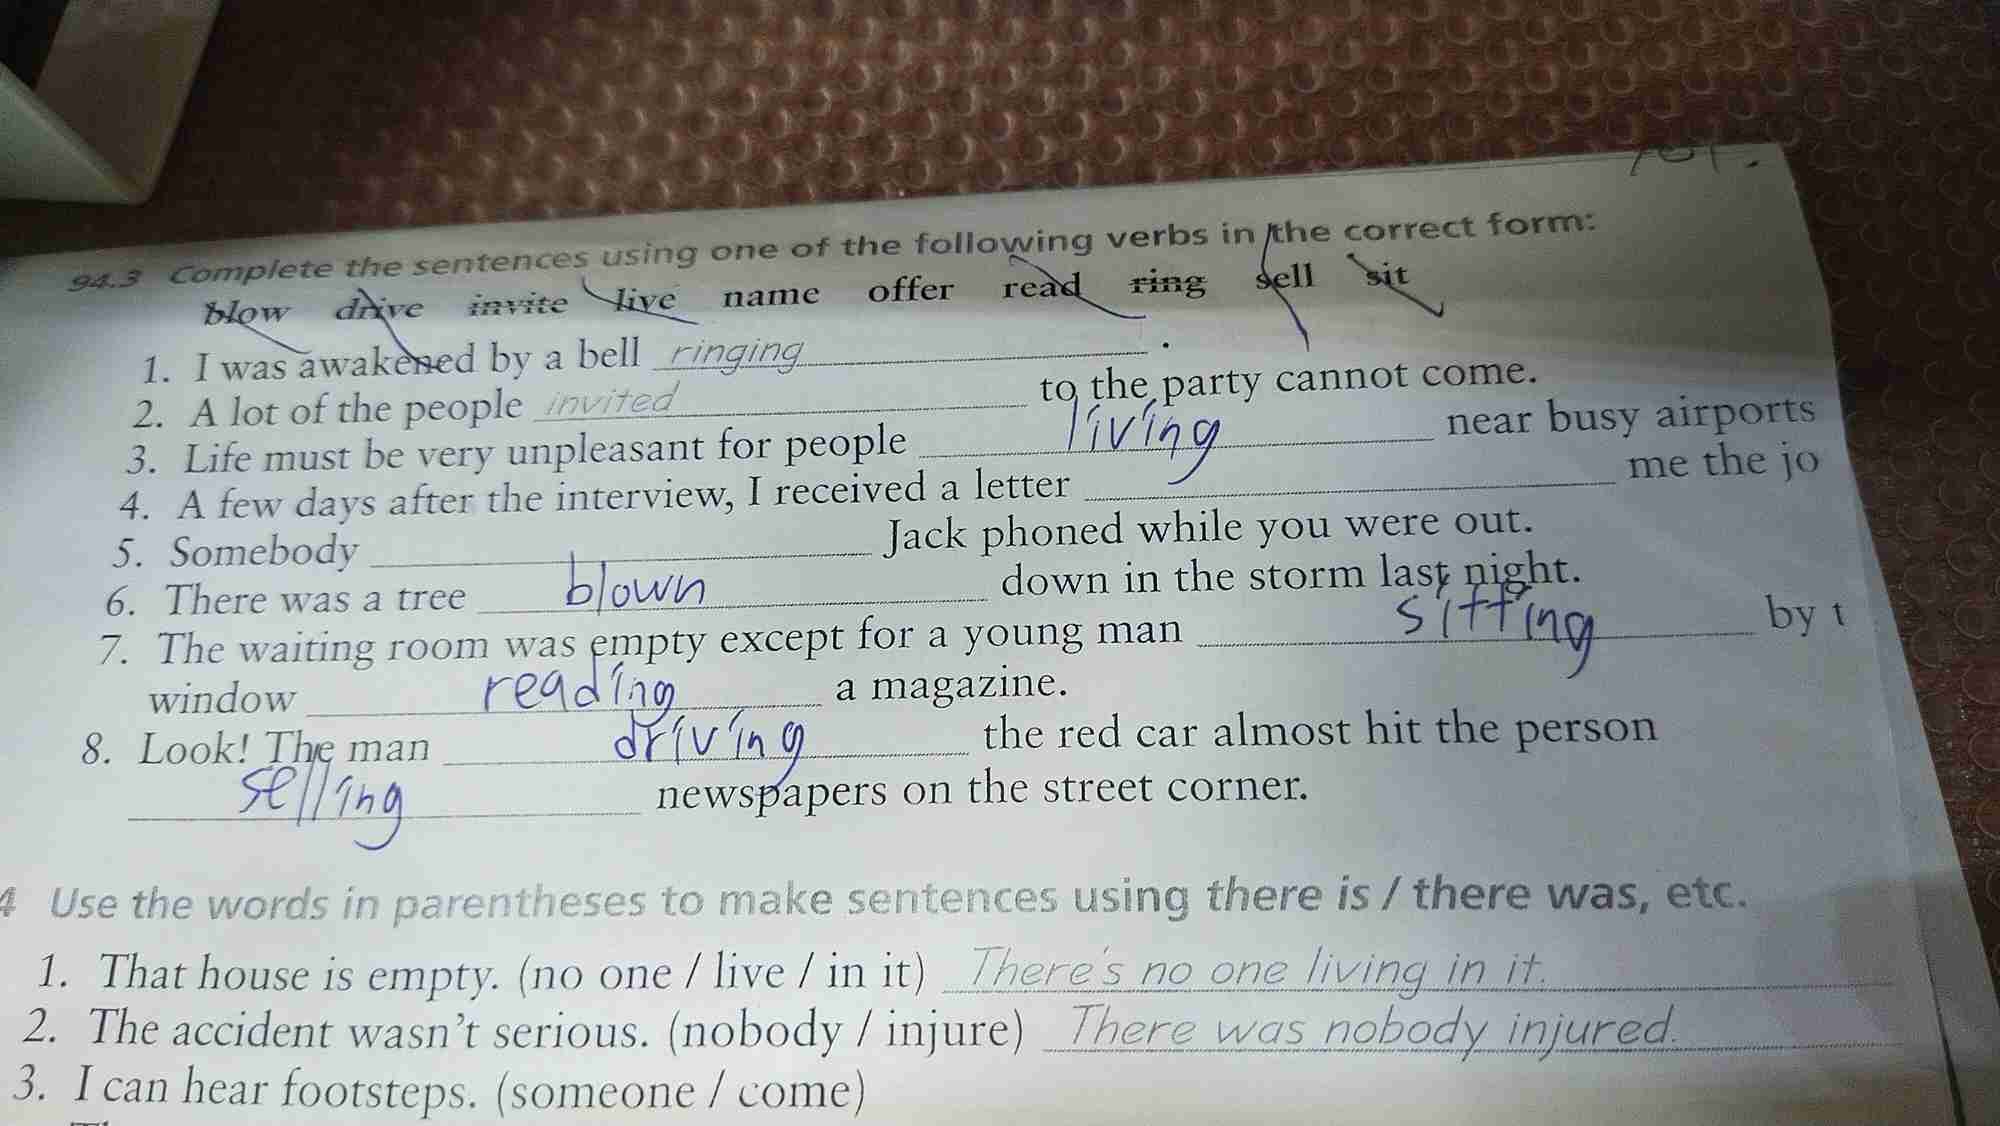 94.3 Complete the sentences using one of the following verbs in the correct form:
blow drive invite live name offer read ring sell sit
1. I was awakened by a bell ringing .
2. A lot of the people invited to the party cannot come.
3. Life must be very unpleasant for people living near busy airports
4. A few days after the interview, I received a letter me the jo
5. Somebody Jack phoned while you were out.
6. There was a tree blown down in the storm last night.
7. The waiting room was empty except for a young man sitting by t
window reading a magazine.
8. Look! The man driving the red car almost hit the person
selling newspapers on the street corner.
4 Use the words in parentheses to make sentences using there is / there was, etc.
1. That house is empty. (no one / live / in it) There's no one living in it.
2. The accident wasn't serious. (nobody / injure) There was nobody injured.
3. I can hear footsteps. (someone / come)